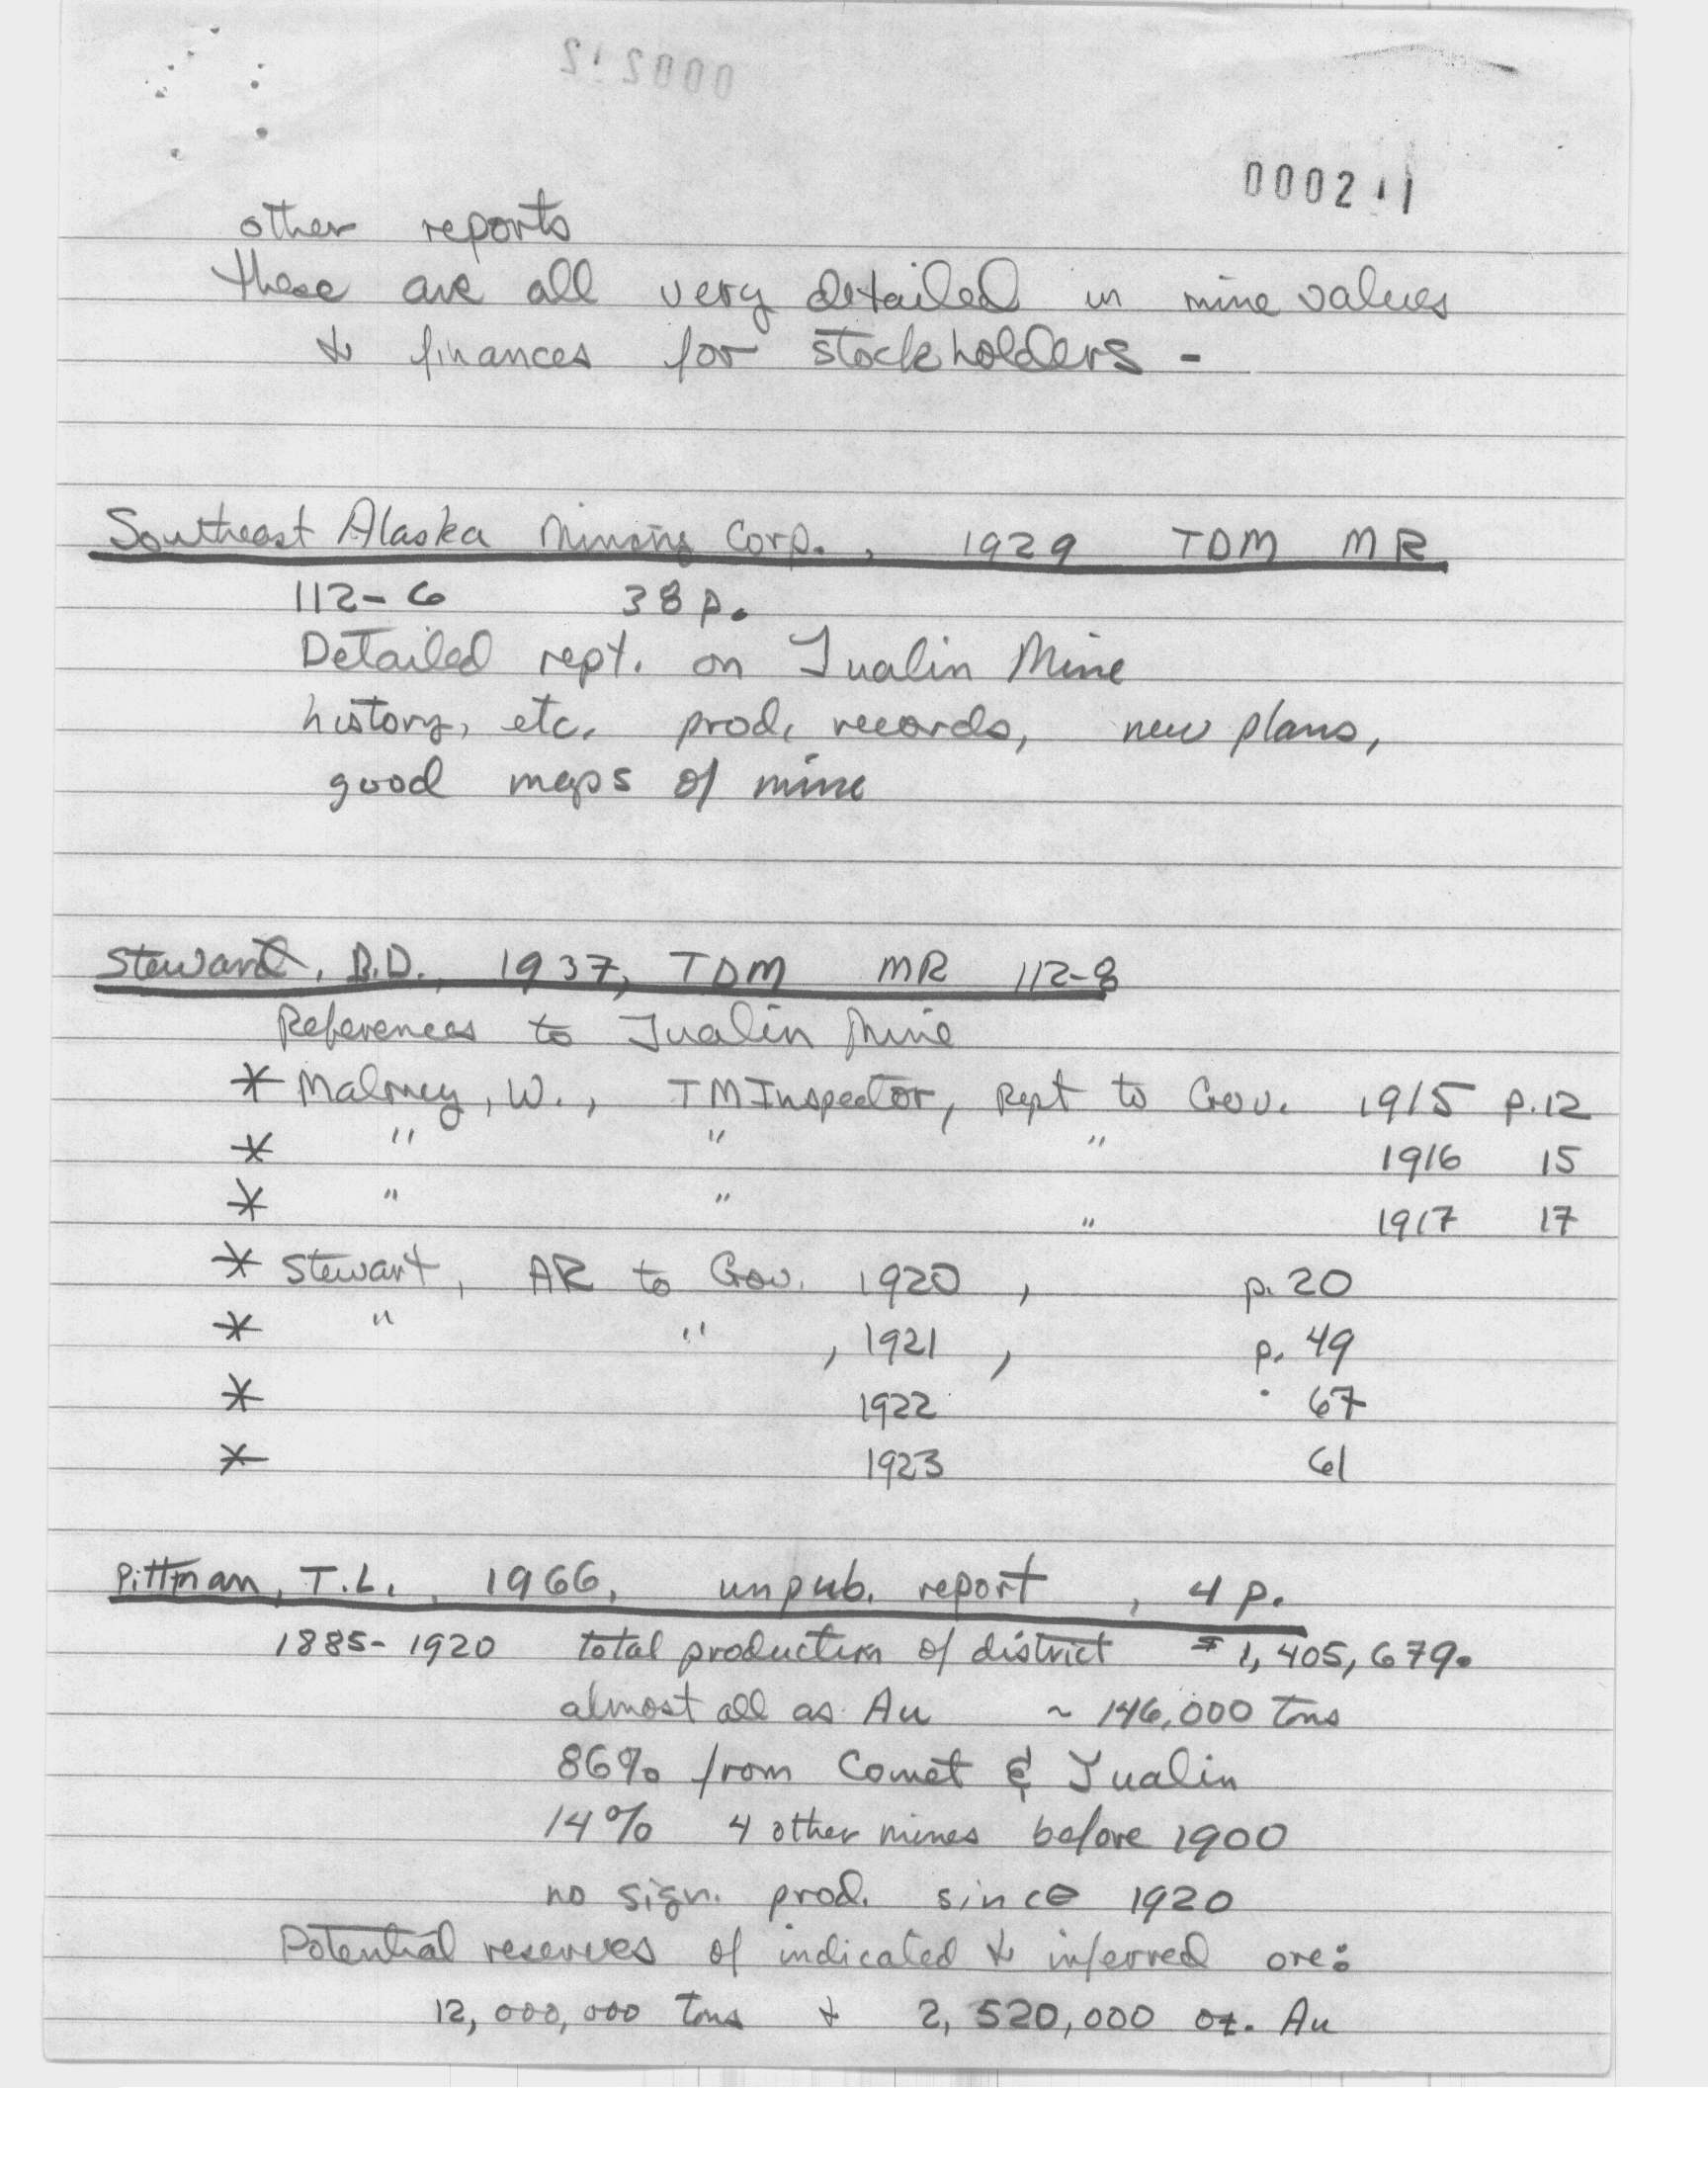 000211
other reports
these are all very detailed in mine values
& finances for stockholders -
Southeast Alaska Mining Corp., 1929 TDM MR
112-6 38 p.
Detailed rept. on Jualin Mine
history, etc. prod. records, new plans,
good maps of mine
Stewart, B.D., 1937, TDM MR 112-8
References to Jualin Mine
* Maloney, W., TMInspector, Rept to Gov. 1915 p.12
* " " " 1916 15
* " " " 1917 17
* Stewart, AR to Gov. 1920, p. 20
* " " , 1921, p. 49
* 1922 67
* 1923 61
Pittman, T.L., 1966, unpub. report, 4 p.
1885-1920 total production of district $1,405,679.
almost all as Au ~ 146,000 tons
86% from Comet & Jualin
14% 4 other mines before 1900
no sign. prod. since 1920
Potential reserves of indicated & inferred ore:
12,000,000 tons & 2,520,000 oz. Au